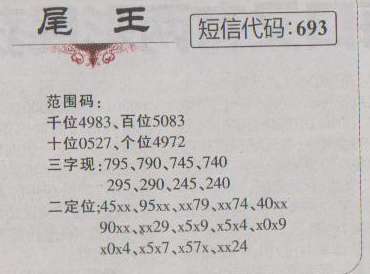 尾 王
短信代码:693
范围码:
千位4983、百位5083
十位0527、个位4972
三字现;795、790、745、740
295、290、245、240
二定位;45xx、95xx、xx79、xx74、40xx
90xx、xx29、x5x9、x5x4、x0x9
x0x4、x5x7、x57x、xx24